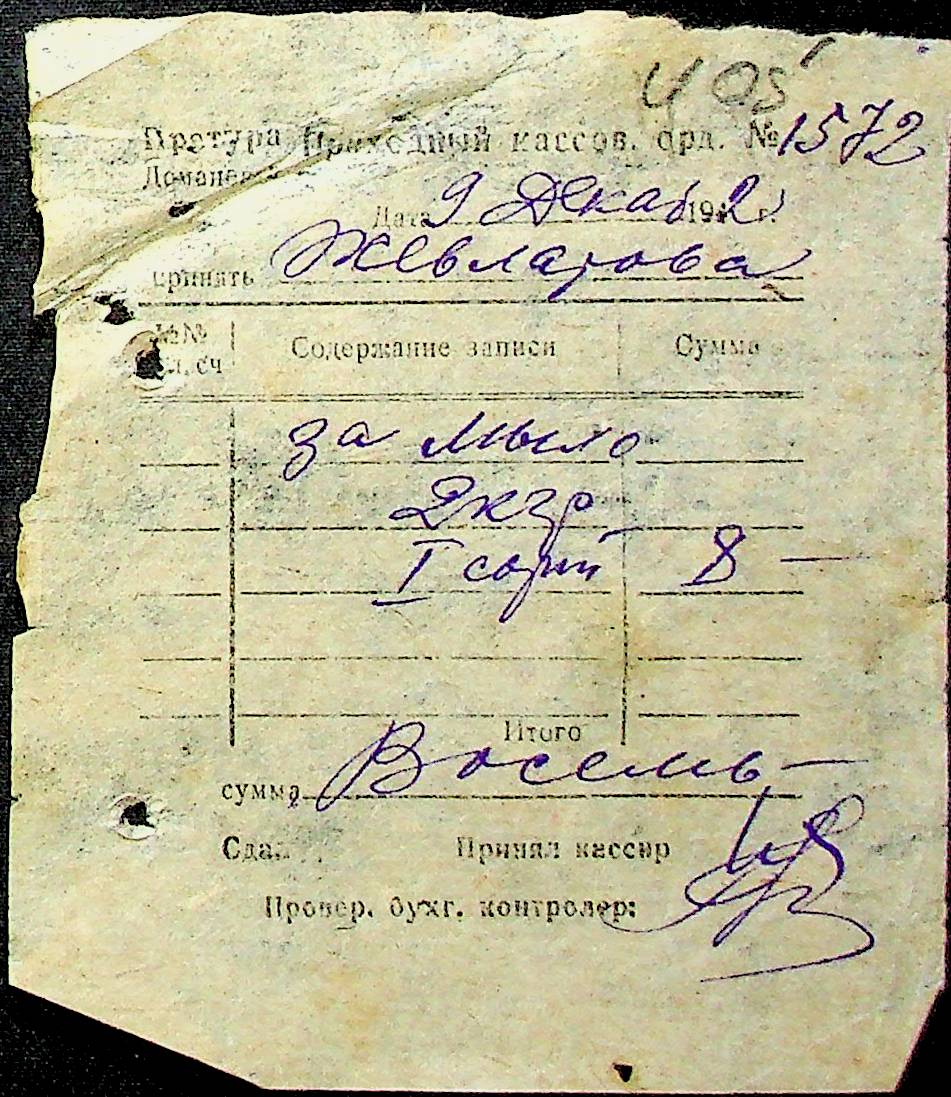 405
Претура Приходный кассов. орд. № 1572
Дата 9 Декаб 1942 г.
принять Жевлагова
№№ л. сч Содержание записи Сумма
за мыло
2 кгр
I сорт 8 —
Итого
сумма Восемь —
Сдал Принял кассир
Провер. бухг. контролер: